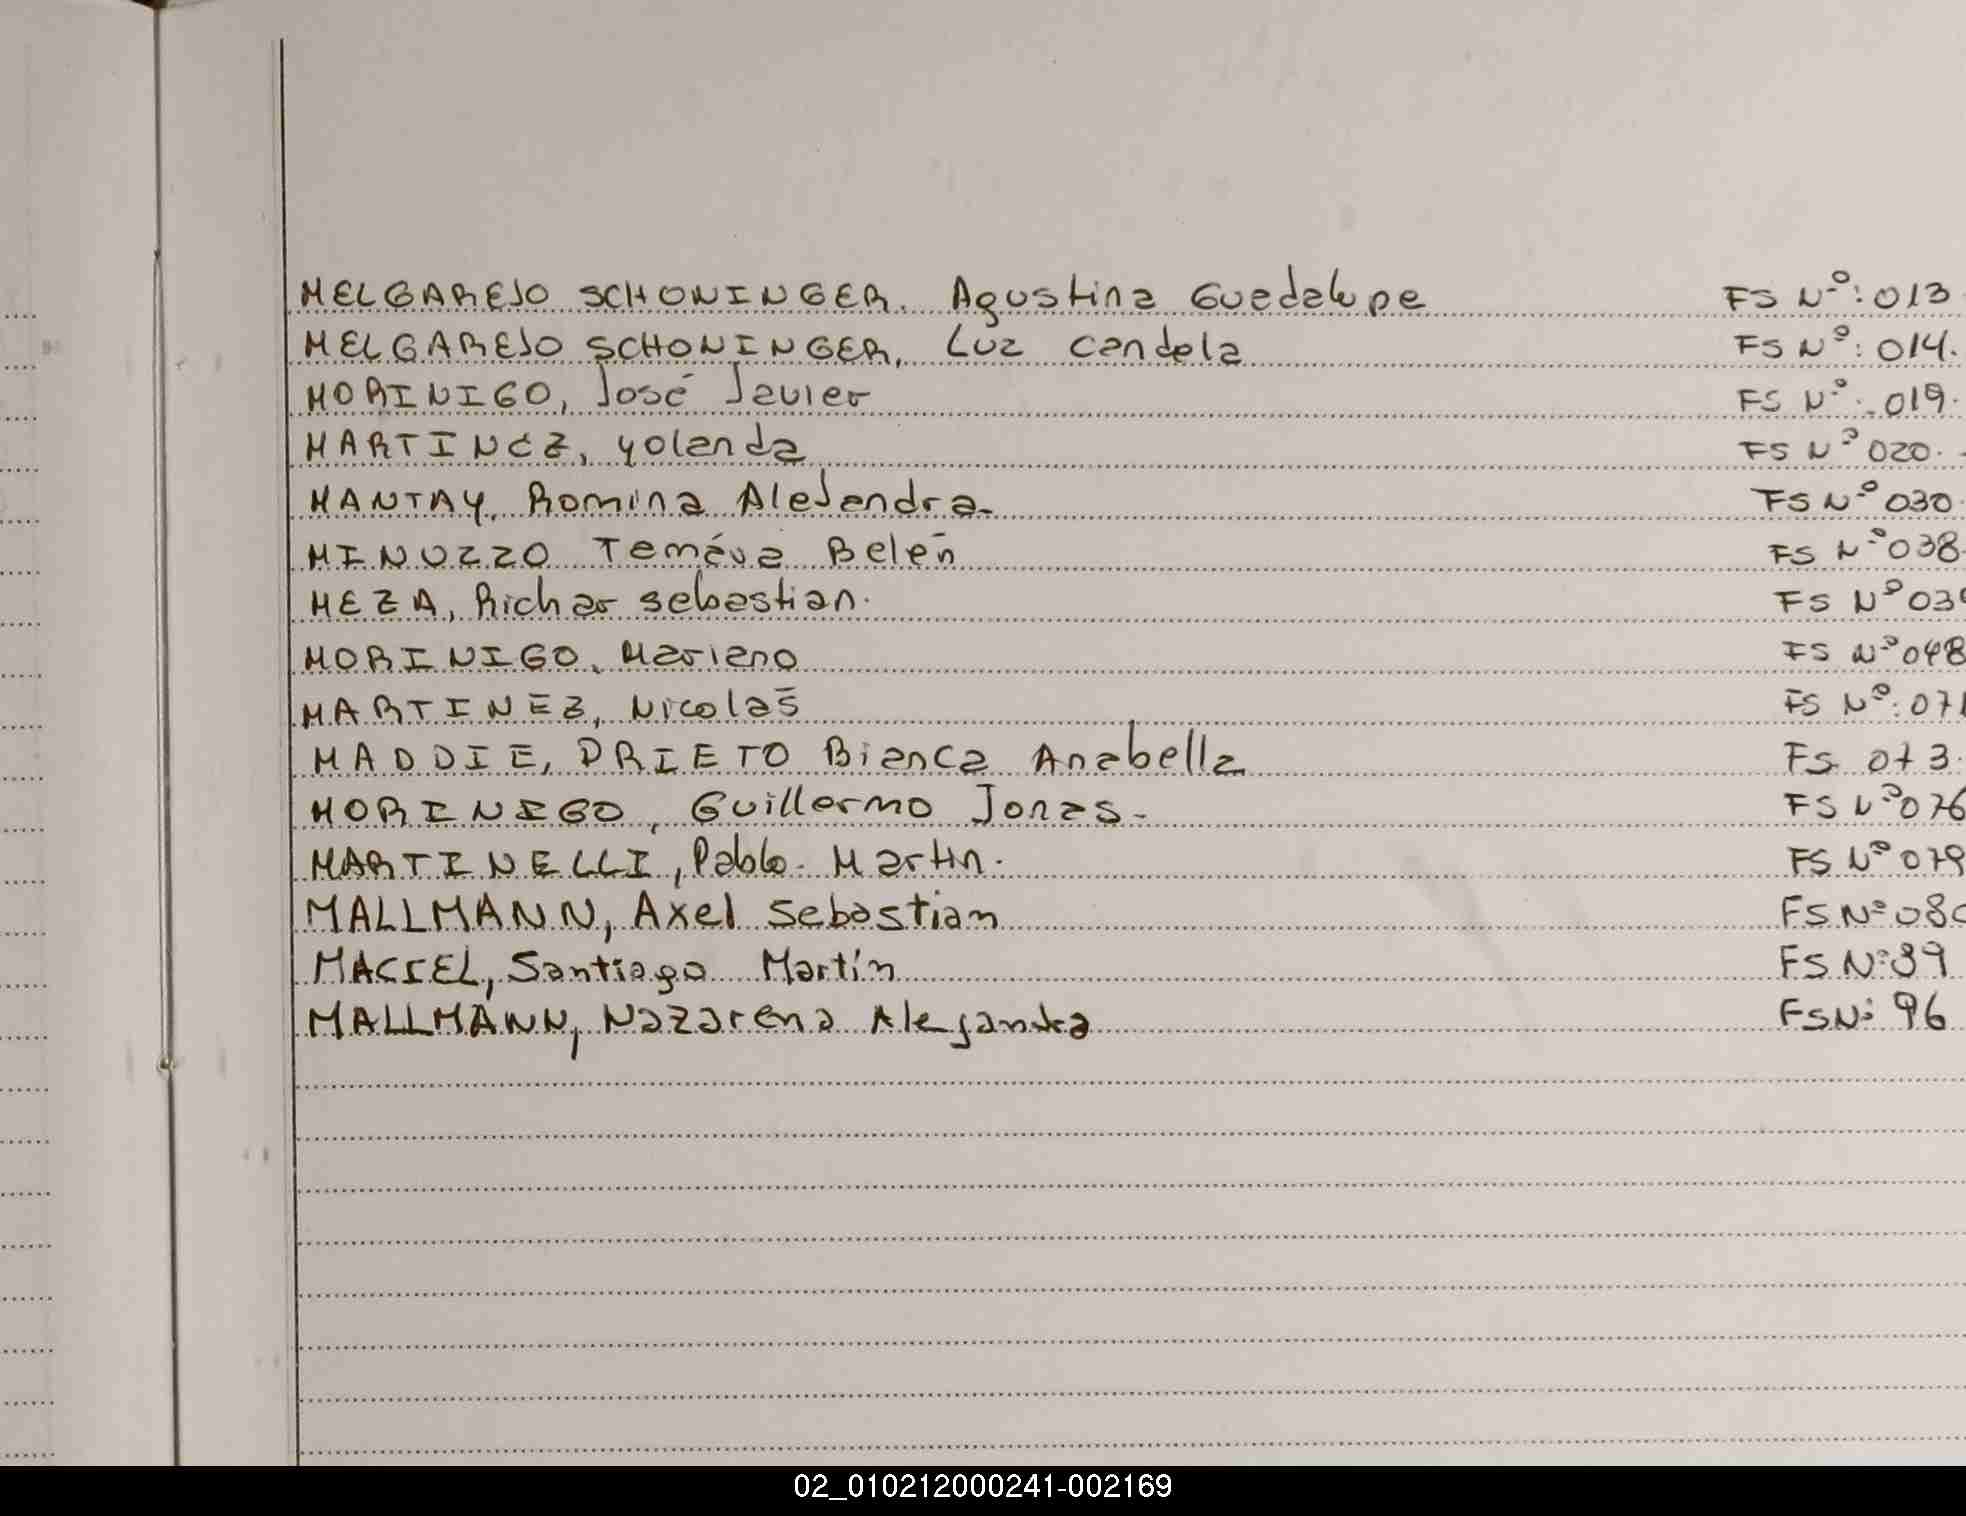 MELGAREJO SCHONINGER. Agustina Guadalupe FS Nº: 013
MELGAREJO SCHONINGER, Luz Candela FS Nº: 014.
MORINIGO, José Javier FS Nº. 019.
MARTINEZ, Yolanda FS Nº 020.
MANTAY, Romina Alejandra. FS Nº 030
MINUZZO Belén FS Nº 038
MEZA, Richar Sebastian. FS Nº
MORINIGO, Mariano FS Nº 048
MARTINEZ, Nicolás FS Nº: 071
MADDIE, PRIETO Bianca Anabella FS 073.
MORINIGO, Guillermo Jonas. FS Nº 076
MARTINELLI, Pablo. Martin. FS Nº 079
MALLMANN, Axel Sebastian FS Nº 080
MACIEL, Santiago Martín FS Nº 89
MALLMANN, Nazarena Alejandra FS Nº 96
02_010212000241-002169